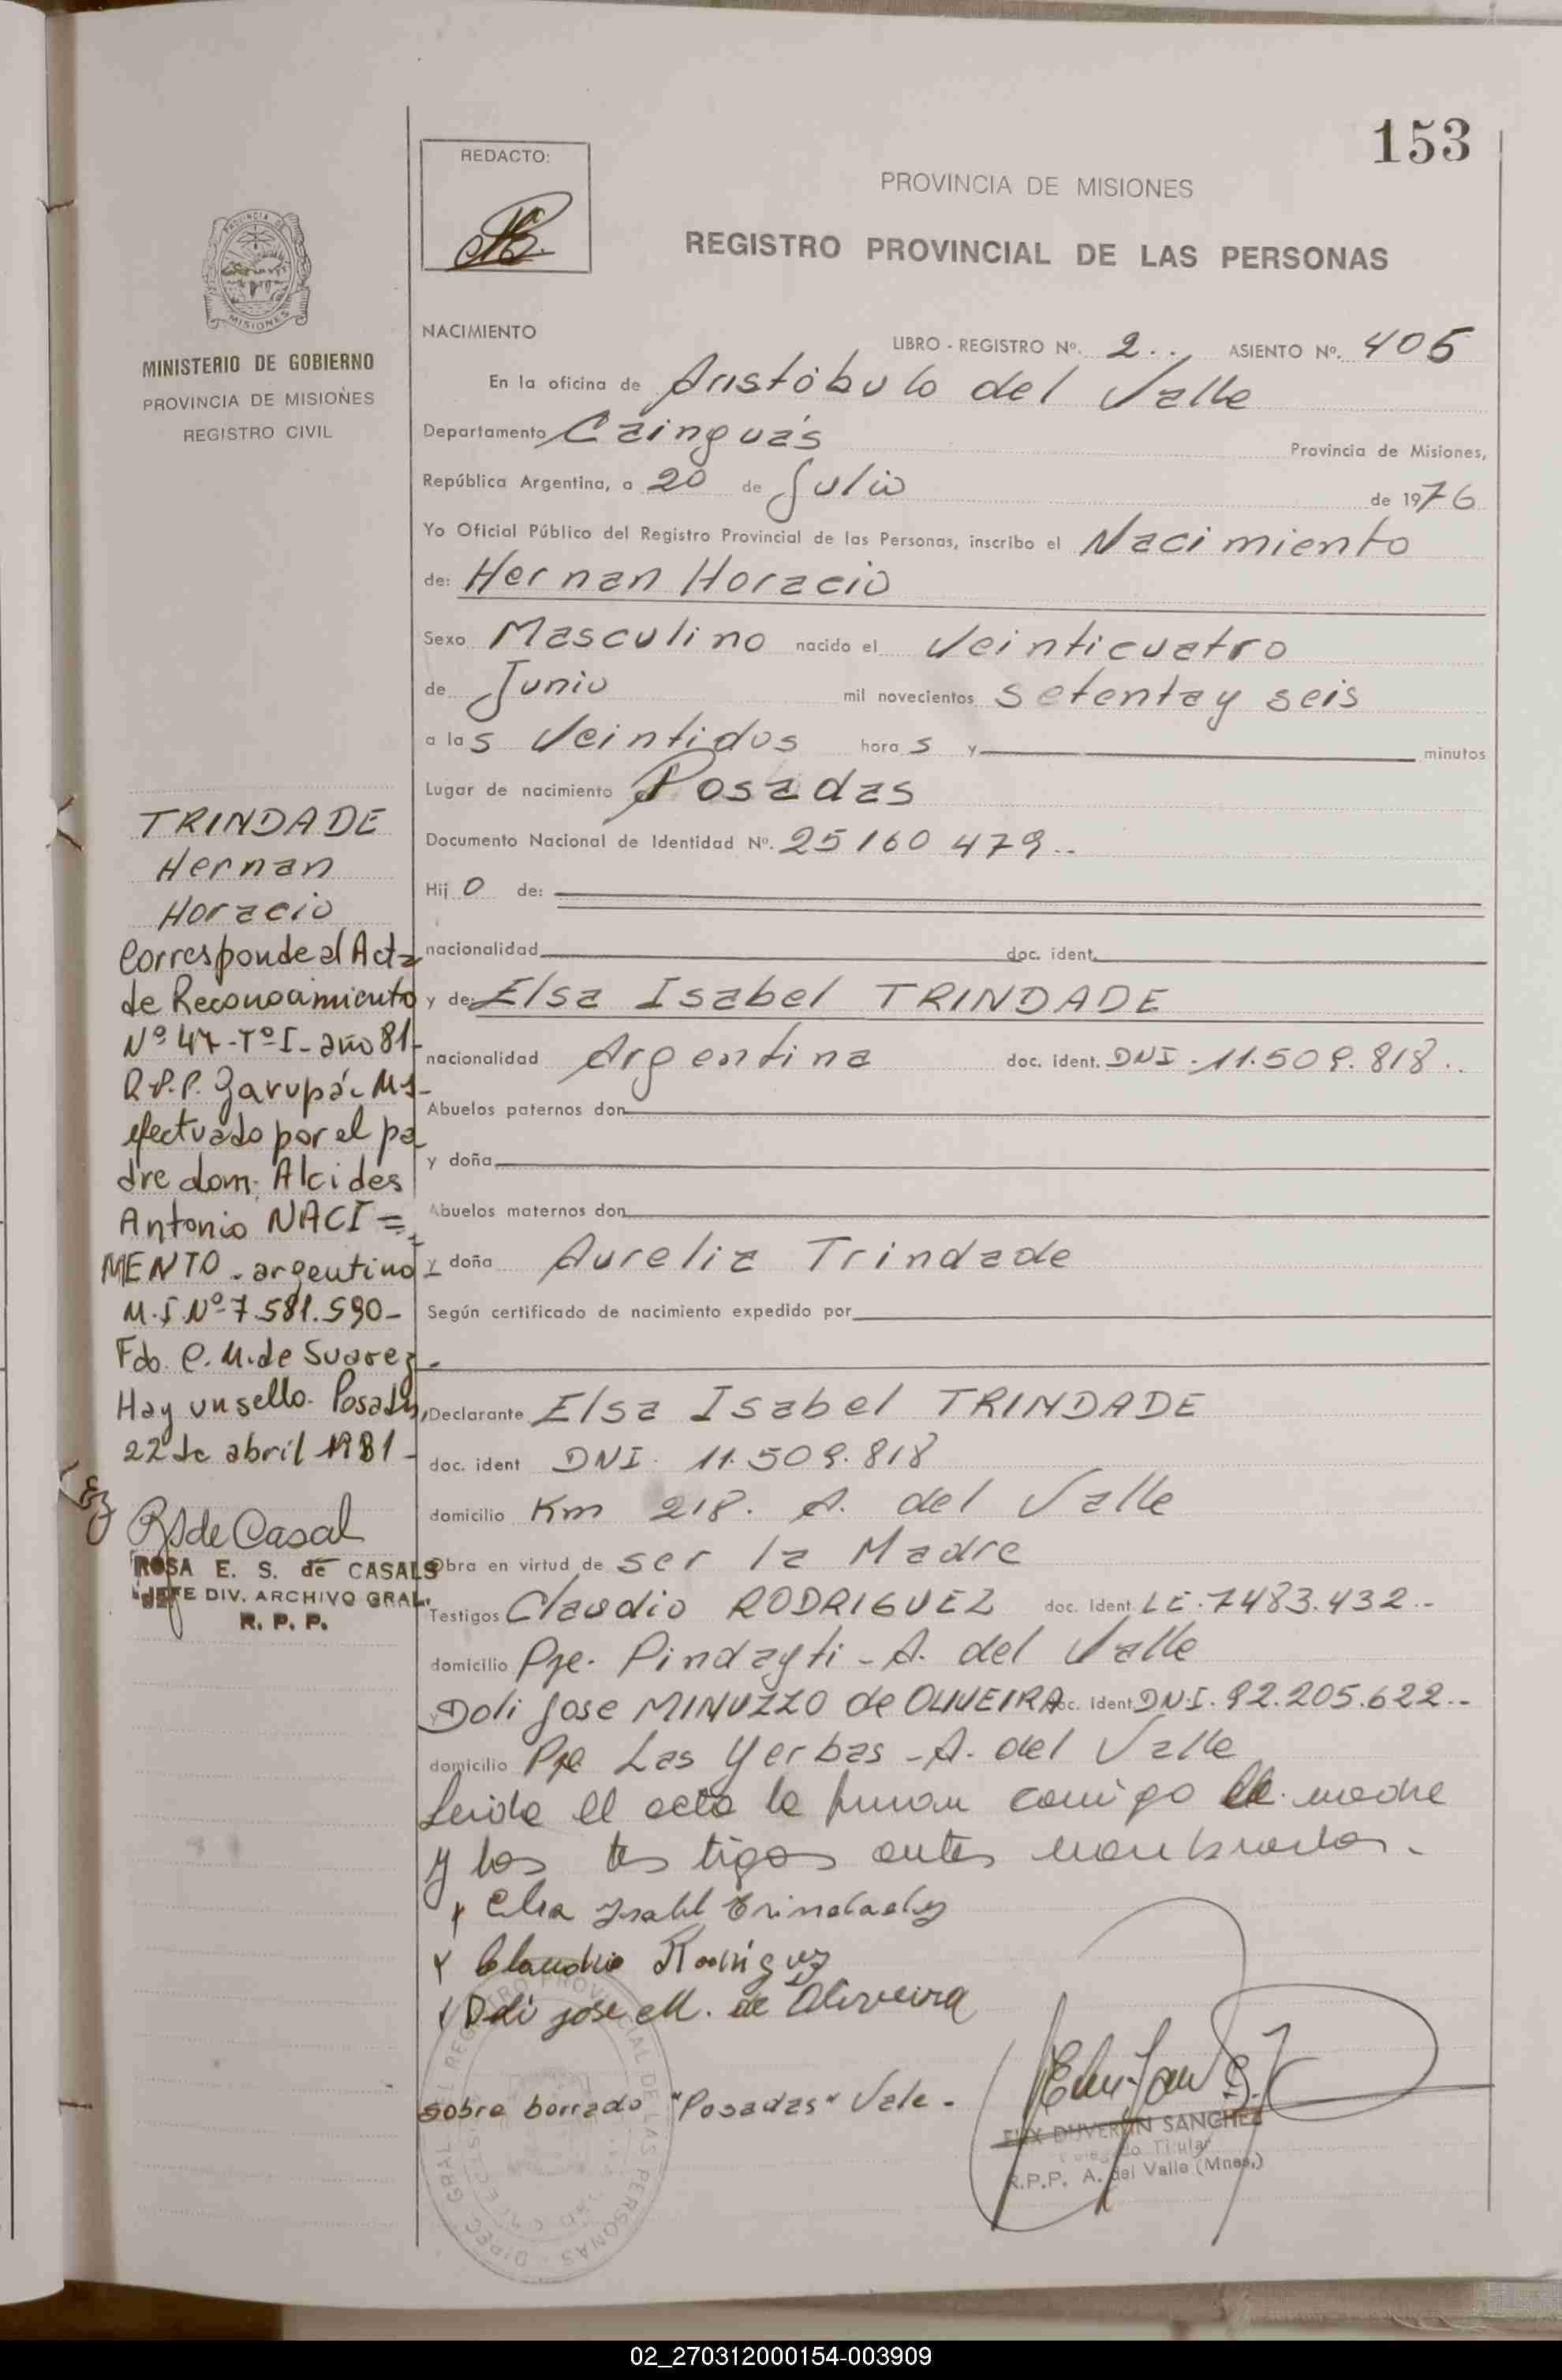 153
REDACTO:
PROVINCIA DE MISIONES
REGISTRO PROVINCIAL DE LAS PERSONAS
MISIONES
MINISTERIO DE GOBIERNO
PROVINCIA DE MISIONES
REGISTRO CIVIL
NACIMIENTO
LIBRO - REGISTRO Nº. 2.., ASIENTO Nº. 405
En la oficina de Aristóbulo del Valle
Departamento Cainguás Provincia de Misiones,
República Argentina, a 20 de Julio de 1976
Yo Oficial Público del Registro Provincial de las Personas, inscribo el Nacimiento
de: Hernan Horacio
Sexo Masculino nacido el Veinticuatro
de Junio mil novecientos setenta y seis
a las Veintidos horas y minutos
Lugar de nacimiento Posadas
Documento Nacional de Identidad Nº. 25160 479..
Hijo de:
nacionalidad doc. ident.
y de: Elsa Isabel TRINDADE
nacionalidad Argentina doc. ident. DNI - 11.509.818..
Abuelos paternos don
y doña
Abuelos maternos don
y doña Aurelia Trindade
Según certificado de nacimiento expedido por
Declarante Elsa Isabel TRINDADE
doc. ident DNI. 11.509.818
domicilio Km 218. A. del Valle
Obra en virtud de ser la Madre
Testigos Claudio RODRIGUEZ doc. Ident. LE. 7483.432..
domicilio Pje. Pindayti - A. del Valle
y Doli Jose MINUZZO de OLIVEIRA doc. Ident. DN.I. 92.205.622..
domicilio Pje Las Yerbas - A. del Valle
Leida el acta la firman conmigo la madre
y los testigos antes nombrados.
x Elsa Isabel Trindade
x Claudio Rodriguez
x Doli jose M. de Oliveira
sobre borrado "Posadas" Vale.
SANCHEZ
Titular
R.P.P. A. del Valle (Mnes.)
TRINDADE
Hernan
Horacio
Corresponde al Acta
de Reconocimiento
Nº 47 - Tº I - año 81-
R.P.P. Garupá - Ms-
efectuado por el pa-
dre don: Alcides
Antonio NACI=
MENTO - argentino
M.I. Nº 7.581.590-
Fdo. C. M. de Suarez.
Hay un sello. Posadas,
22 de abril 1981-
RSde Casal
ROSA E. S. de CASALS
JEFE DIV. ARCHIVO GRAL.
R. P. P.
02_270312000154-003909